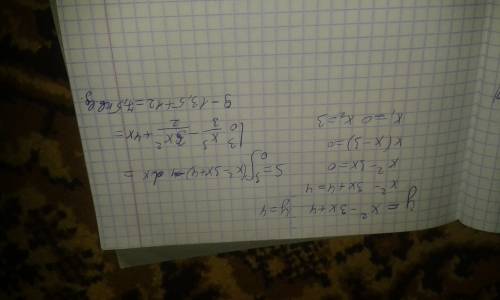 y = x² - 3x + 4 y = 4
x² - 3x + 4 = 4
x² - 3x = 0
x(x - 3) = 0
x₁ = 0 x₂ = 3
S = ∫₀³ (x² 3x + 4) - 4 dx =
|₀³ x³/3 - 3x²/2 + 4x =
9 - 13,5 + 12 = 7,5 кв ед.